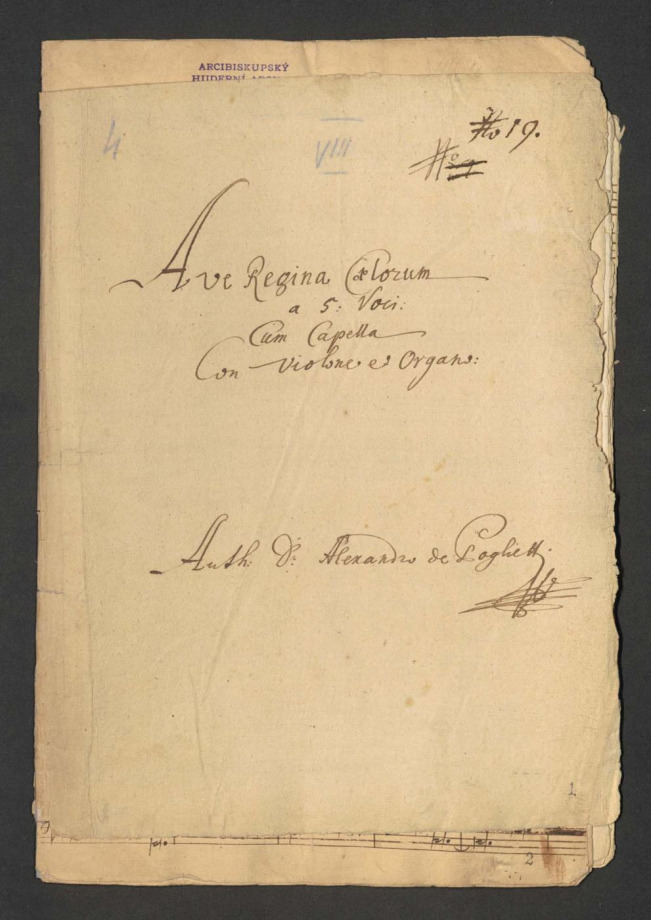 ARCIBISKUPSKÝ
HUDEBNÍ
4
VIII
No 19.
Ave Regina Cælorum
a 5: Voci:
Cum Capella
Con Violone e Organo:
Auth. D: Alexandro de Poglietti
1
2